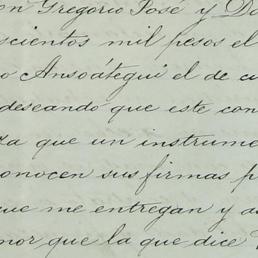 on Gregorio José y Do
scientos mil pesos el
o Ansoátegui el de cu
deseando que este con
za que un instrume
onocen sus firmas p
que me entregan y a
nor que la que dice